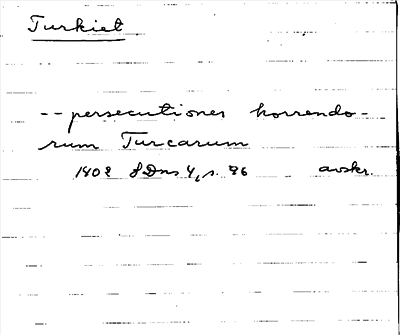 Turkiet
-- persecutiones horrendo-
rum Turcarum
1402 SDns 4, s. 86 avskr.